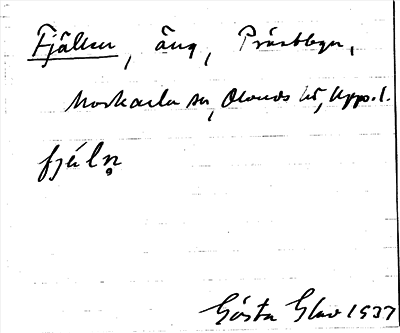 Fjällen, äng, Prästbyn,
Morkarla sn, Olands hd, Upps. l.
fjäln̥
Gösta Glav 1937